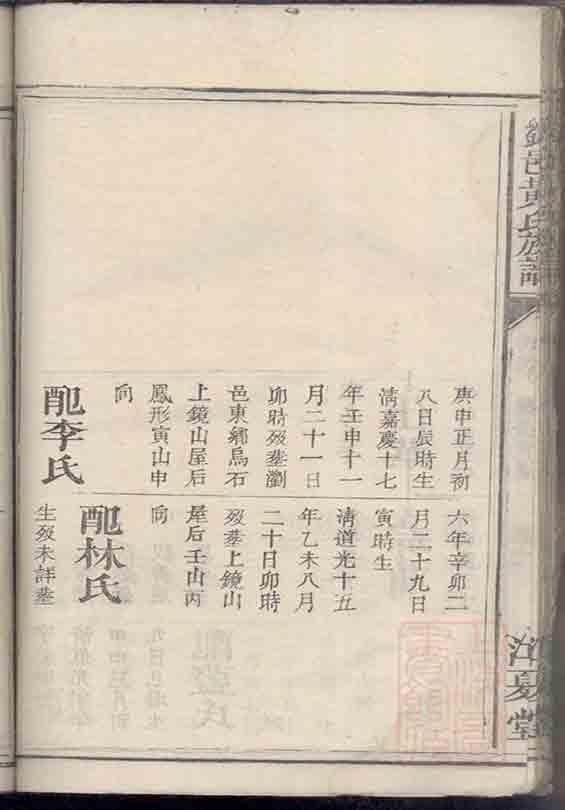 邑黃氏族譜
江夏堂
庚申正月初
八日辰時生
清嘉慶十七
年壬申十一
月二十一日
卯時殁塟瀏
邑東鄉烏石
上鏡山屋后
鳳形寅山申
向
配李氏
六年辛卯二
月二十九日
寅時生
清道光十五
年乙未八月
二十日卯時
殁塟上鏡山
屋后壬山丙
向
配林氏
生殁未詳塟